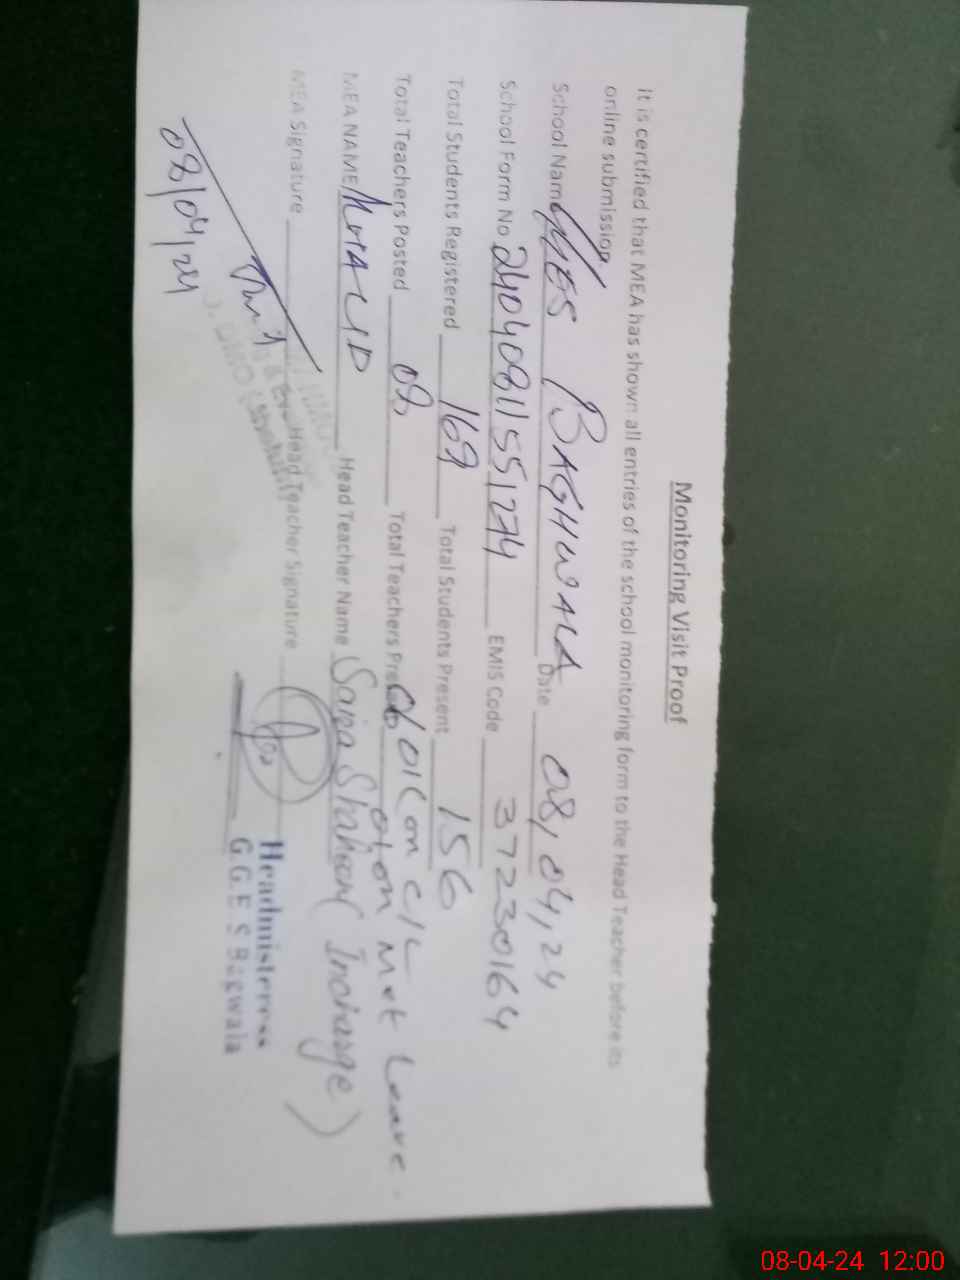 Monitoring Visit Proof
It is certified that MEA has shown all entries of the school monitoring form to the Head Teacher before its
online submission.
School Name GGES BAGHWALA Date 08,04,24
School Form No 2404081155,274 EMIS Code 37230164
Total Students Registered 169 Total Students Present 156
Total Teachers Posted 08 Total Teachers Pres 06 01 (on C/L
01 on Mat Leave.
MEA NAME KHALID Head Teacher Name Saira Shaheen ( Incharge )
MEA Signature Head Teacher Signature
Headmisteress
G.G.E.S Bagwala
08/04/24
08-04-24 12:00